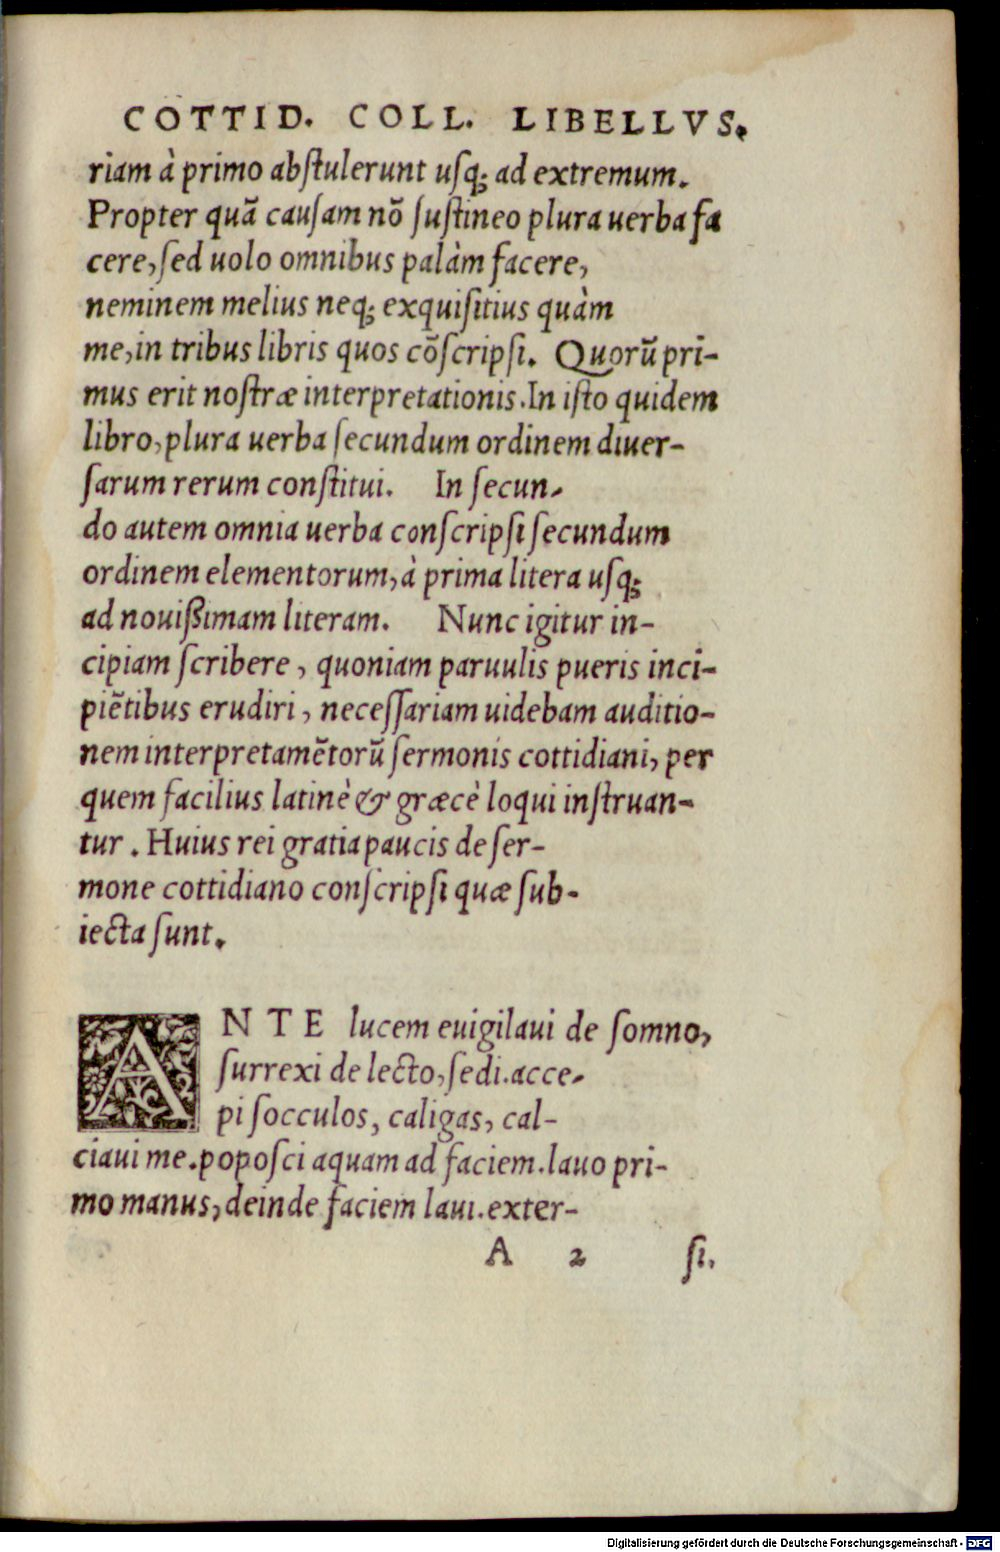 COTTID. COLL. LIBELLVS.
riam à primo abſtulerunt uſq; ad extremum.
Propter quã cauſam nõ ſuſtineo plura uerba fa
cere, ſed uolo omnibus palàm facere,
neminem melius neq; exquiſitius quàm
me, in tribus libris quos cõſcripſi. Quorũ pri-
mus erit noſtræ interpretationis. In iſto quidem
libro, plura uerba ſecundum ordinem diuer-
ſarum rerum conſtitui. In ſecun-
do autem omnia uerba conſcripſi ſecundum
ordinem elementorum, à prima litera uſq;
ad nouißimam literam. Nunc igitur in-
cipiam ſcribere, quoniam paruulis pueris inci-
piẽtibus erudiri, neceſſariam uidebam auditio-
nem interpretamẽtorũ ſermonis cottidiani, per
quem facilius latinè & græcè loqui inſtruan-
tur. Huius rei gratia paucis de ſer-
mone cottidiano conſcripſi quæ ſub-
iecta ſunt.
ANTE lucem euigilaui de ſomno,
ſurrexi de lecto, ſedi. acce-
pi ſocculos, caligas, cal-
ciaui me. popoſci aquam ad faciem. lauo pri-
mo manus, deinde faciem laui. exter-
A 2 ſi,
Digitalisierung gefördert durch die Deutsche Forschungsgemeinschaft - DFG